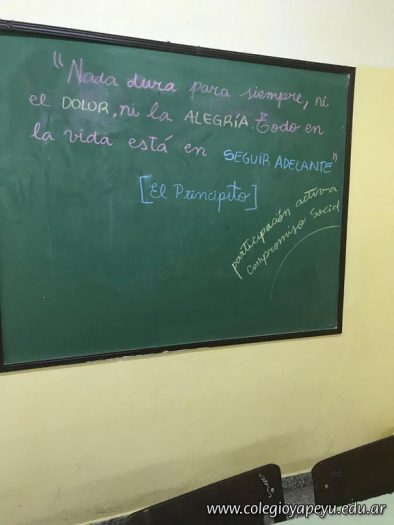 "Nada dura para siempre, ni
el DOLOR, ni la ALEGRÍA. Todo en
la vida está en SEGUIR ADELANTE"
[El Principito]
participación activa
Compromiso Social
www.colegioyapeyu.edu.ar